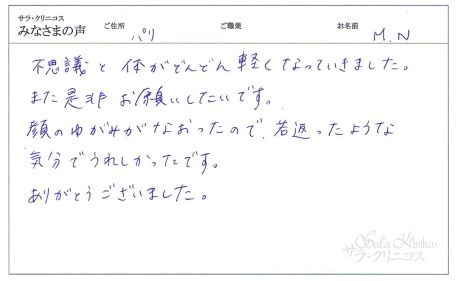 サラ・クリニコス
みなさまの声 ご住所 パリ ご職業 お名前 M.N
不思議と体がどんどん軽くなっていきました。
また是非お願いしたいです。
顔のゆがみがなおったので、若返ったような
気分でうれしかったです。
ありがとうございました。
Sala Klinikos
サラ・クリニコス